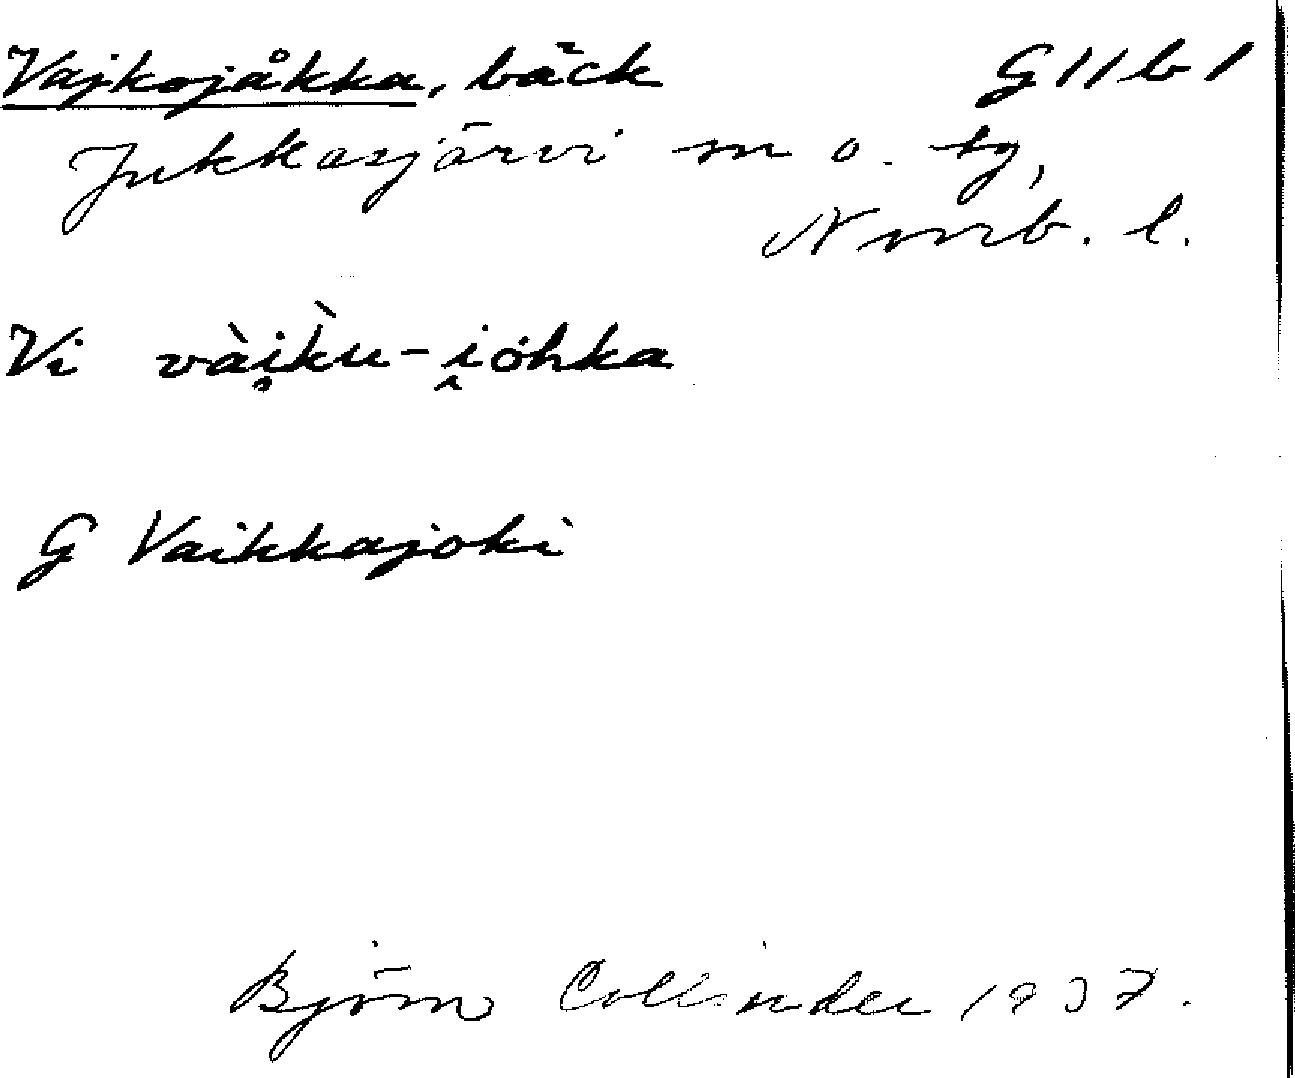 Vajkojåkka, bäck G11b1
Jukkasjärvi sn o. tg,
Norrb. l.
Vi vàik̀u-i̭óhka
G Vaikkajoki
Björn Collinder 1937.